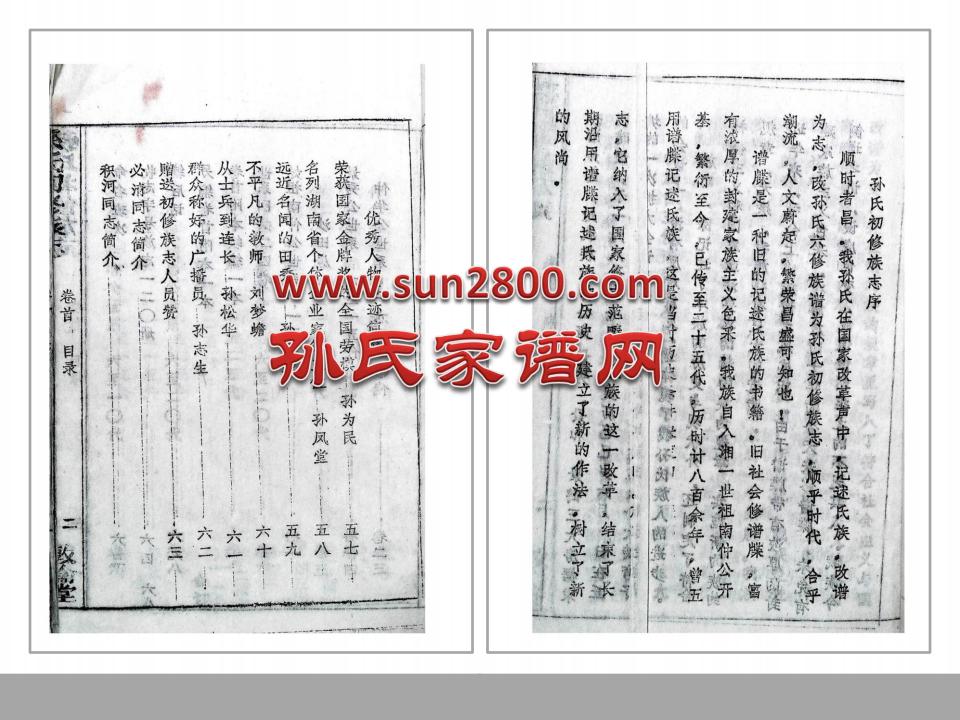 孙氏初修族志序
顺时者昌。我孙氏在国家改革声中，记述氏族，改谱
为志，改孙氏六修族谱为孙氏初修族志，顺乎时代，合乎
潮流，人文蔚起，繁荣昌盛可知也！
谱牒是一种旧的记述氏族的书籍，旧社会修谱牒，富
有浓厚的封建家族主义色采，我族自入湘一世祖南仲公开
基，繁衍至今，已传至二十五代，历时计八百余年，曾五
用谱牒记述氏族，这是当时历史
志，它纳入了国家 范畴 族的这一改革，结束了长
期沿用谱牒记述氏族历史，建立了新的作法，树立了新
的风尚。
优秀人物
荣获国家金牌奖的全国劳模 孙为民 五七
名列湖南省个体 业家 孙凤堂 五八
远近名闻的田秀 孙 五九
不平凡的教师 刘梦蟾 六十
从士兵到连长 孙松华 六一
群众称好的广播员 孙志生 六二
赠送初修族志人员赞 六三
必清同志简介 六四
积河同志简介
卷首 目录
二
www.sun2800.com
孙氏家谱网